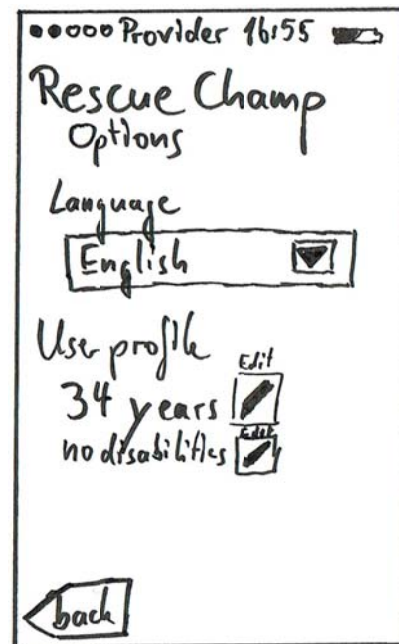 Provider 16:55
Rescue Champ
Options
Language
English
User profile
Edit
34 years
Edit
no disabilities
back